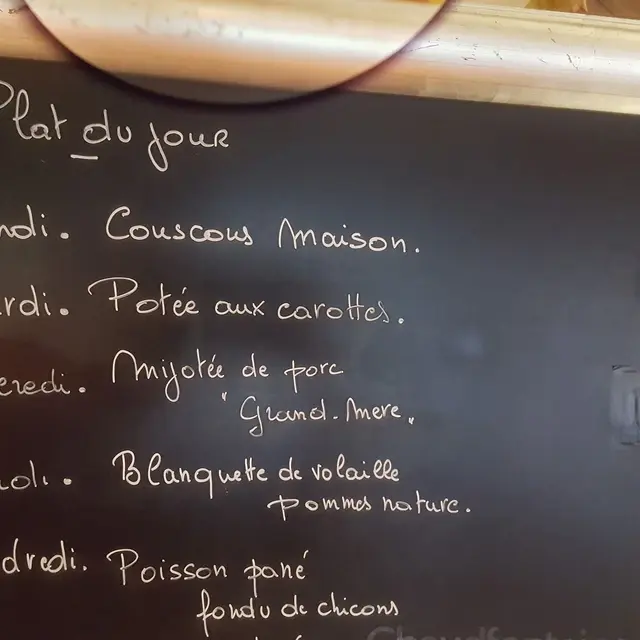 Plat du jour
ndi. Couscous maison.
rdi. Potée aux carottes.
credi. Mijotée de porc
"Grand-Mere"
udi. Blanquette de volaille
pommes nature.
dredi. Poisson pané
fondu de chicons